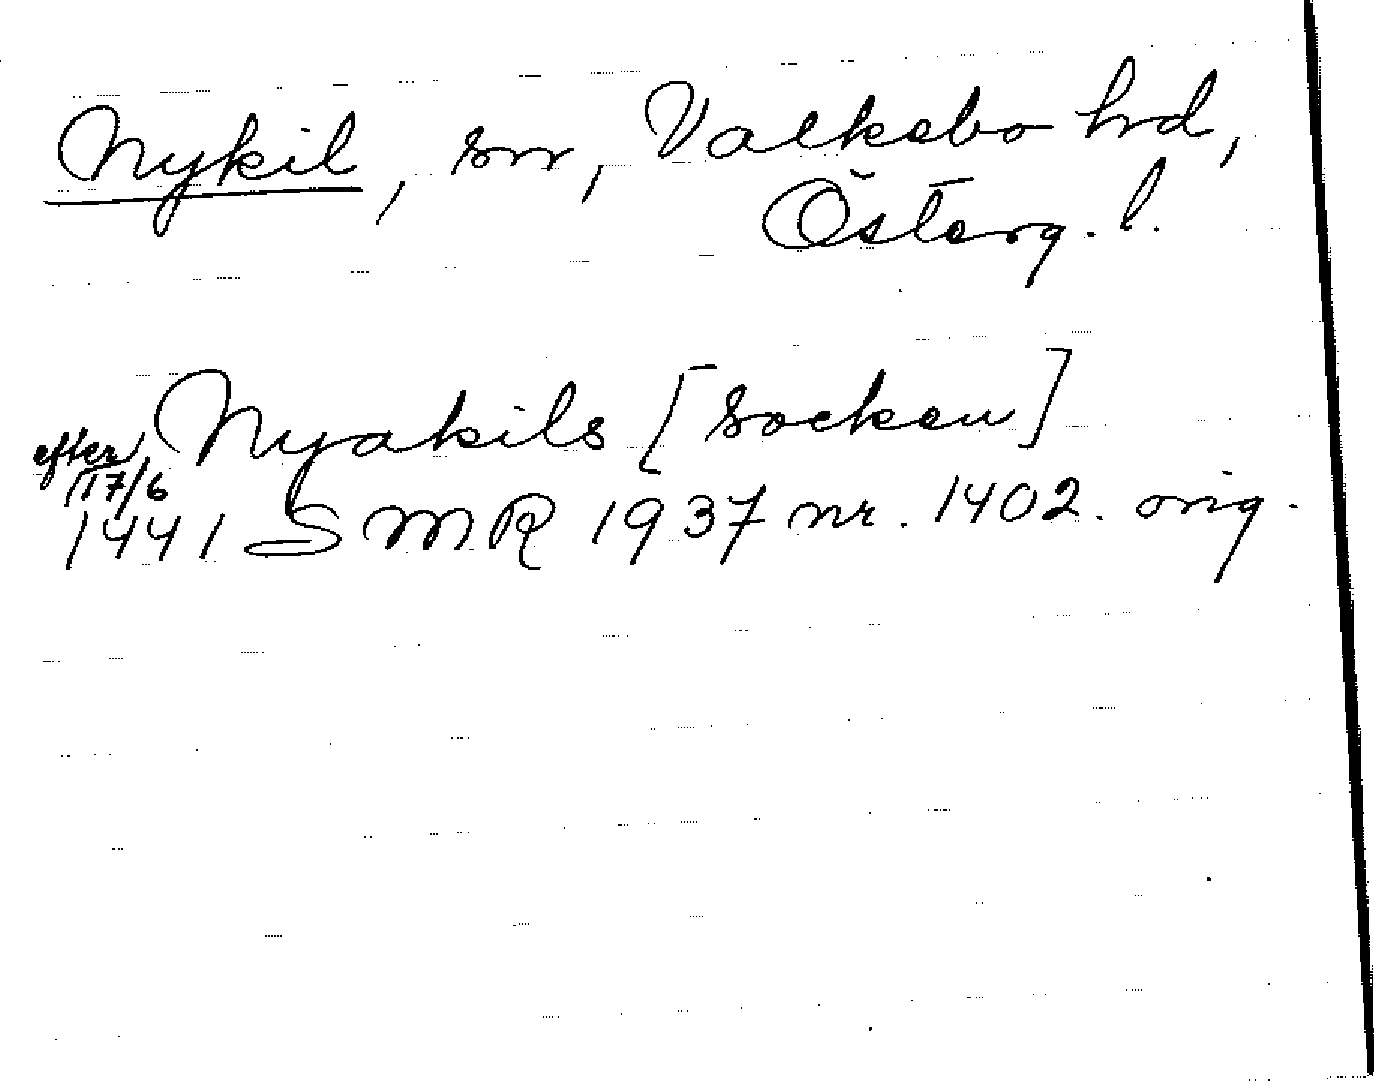 Nykil, sn, Valkebo hrd,
Österg. l.
Nyakils [socken]
efter 17/6
1441 SMR 1937 nr. 1402. orig.